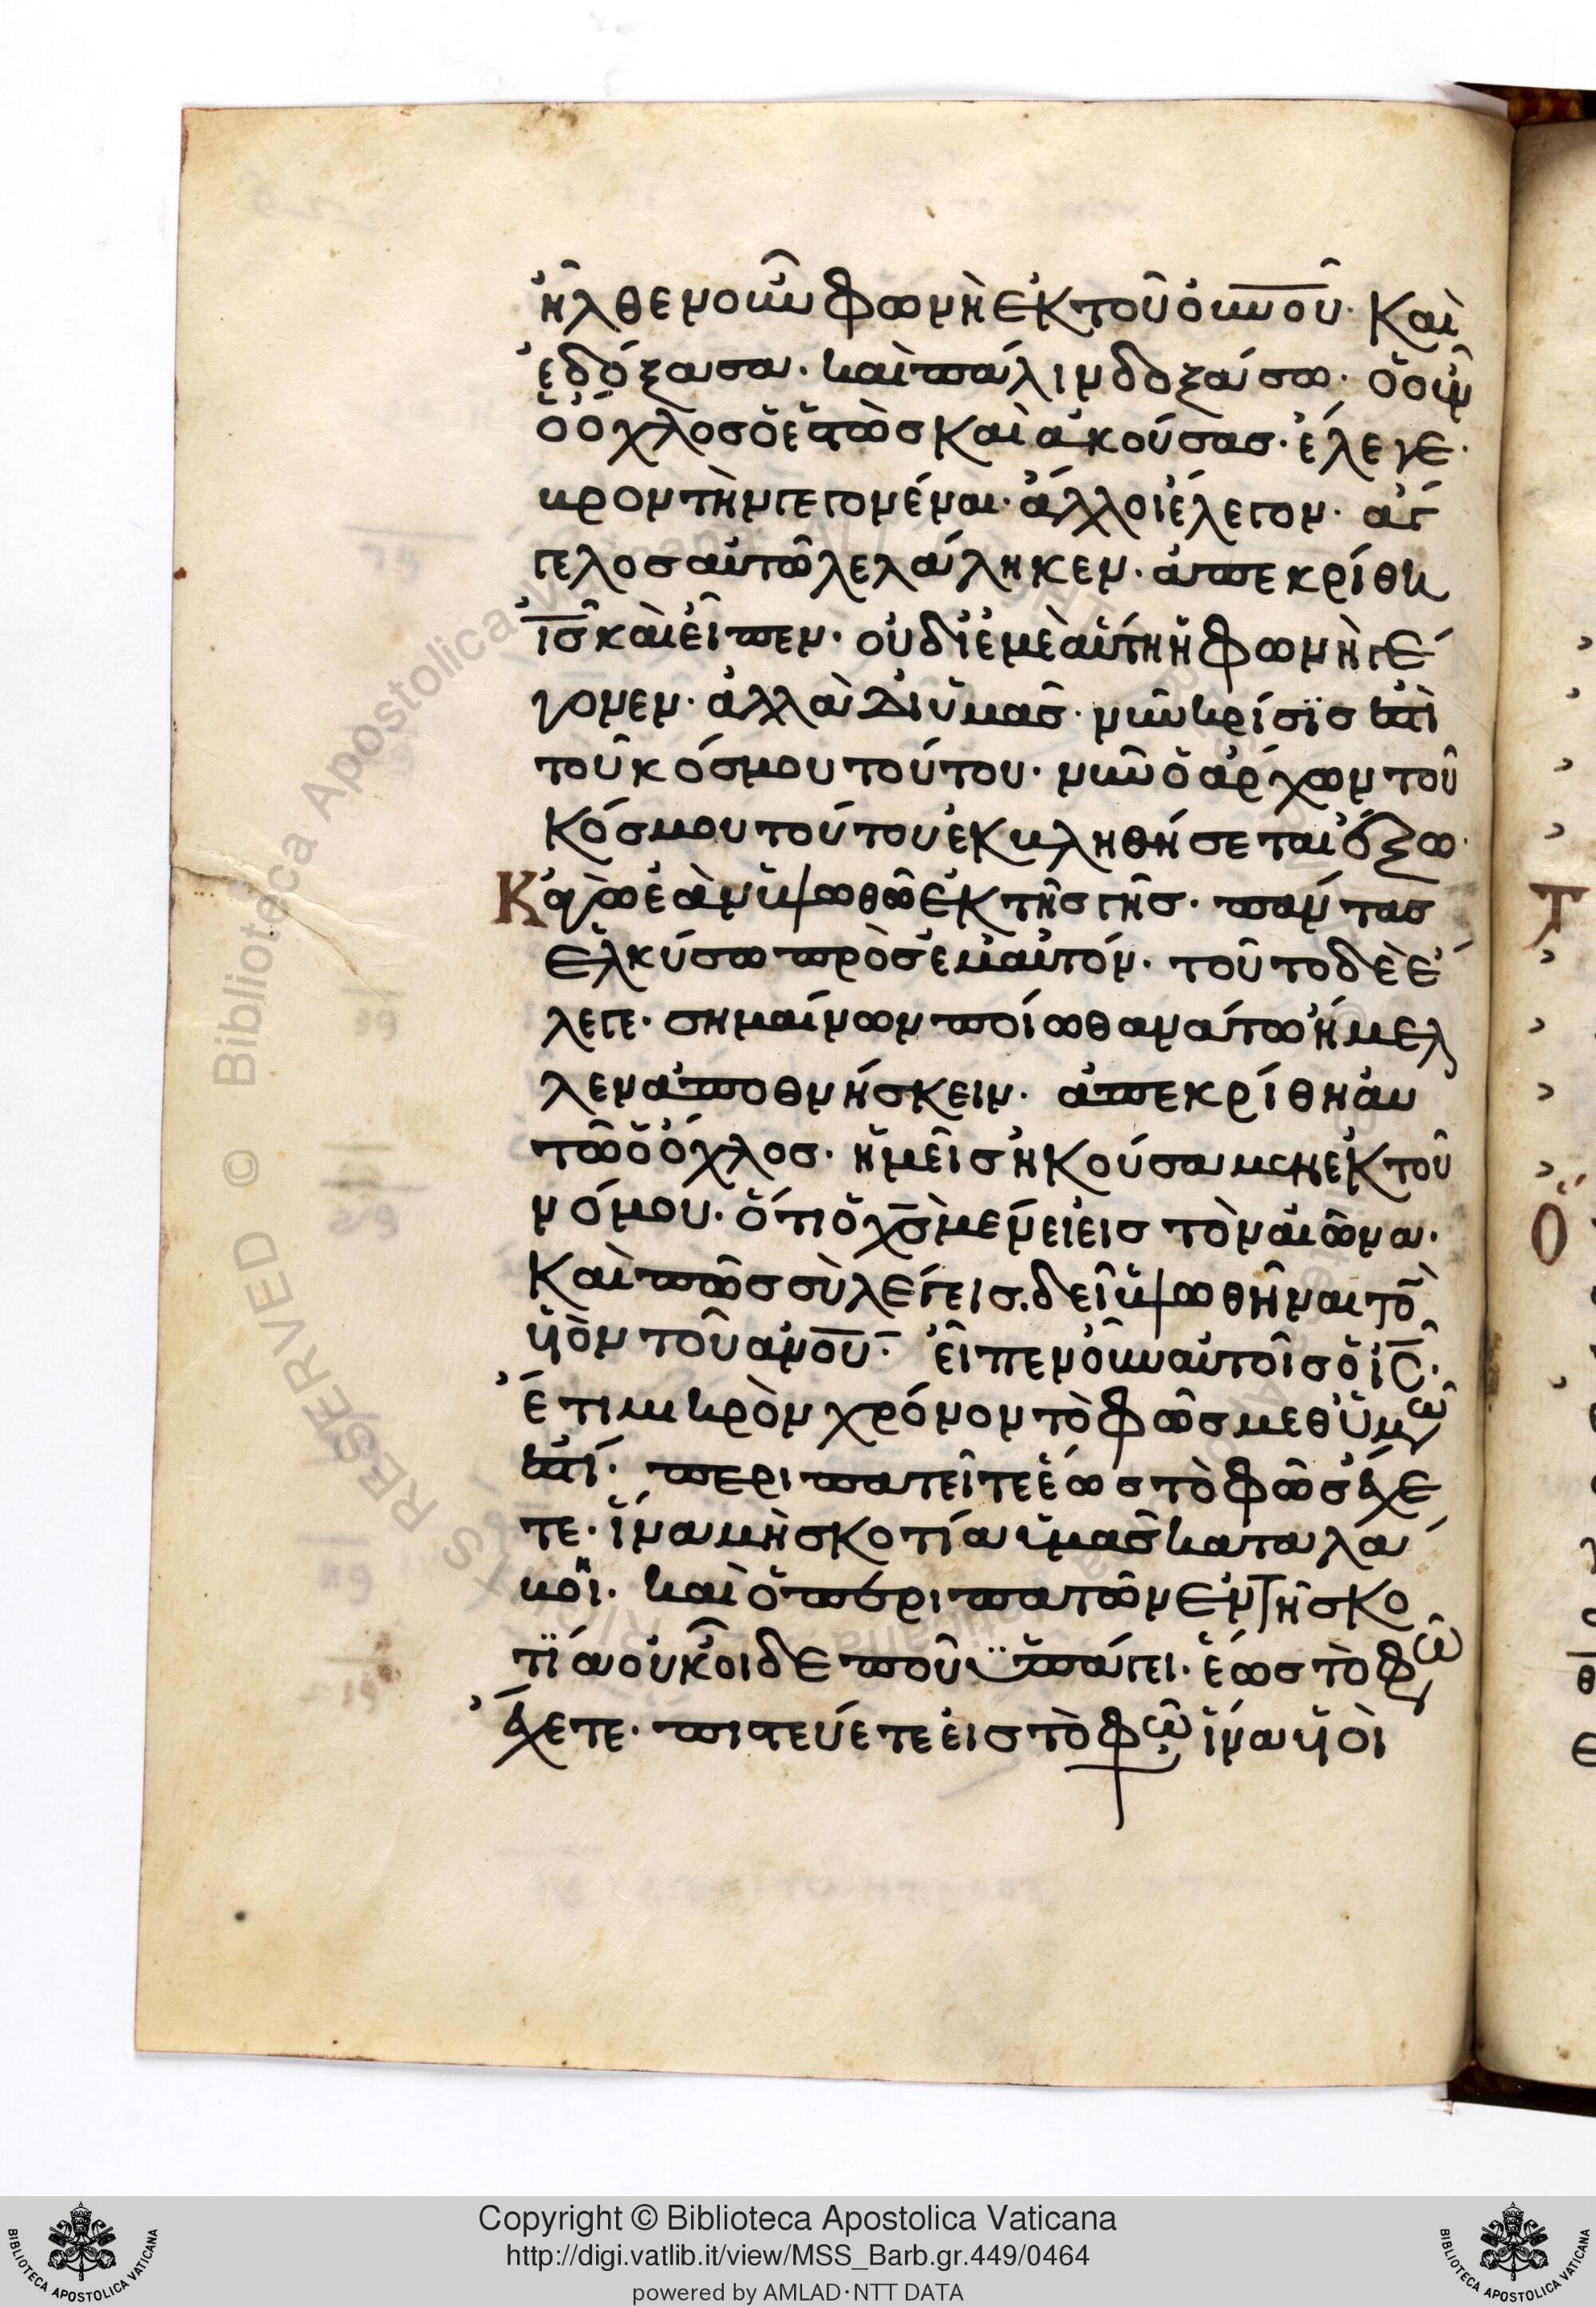 ἦλθεν οὖν φωνὴ ἐκ τοῦ οὐνοῦ· Καὶ
ἐδόξασα· καὶ πάλιν δοξάσω· ὁ οὖν
ὁ ὄχλος ὁ ἑστὼς καὶ ἀκούσας· ἔλεγε·
βροντὴν γεγονέναι· ἄλλοι ἔλεγον· ἄγ
γελος αὐτῶ λελάληκεν· ἀπεκρίθη
ἰς καὶ εἶπεν· οὐ δι' ἐμὲ αὕτη ἡ φωνὴ γέ
γονεν· ἀλλὰ δι' ὑμᾶς· νῦν κρίσις ἐστὶ
τοῦ κόσμου τούτου· νῦν ὁ ἄρχων τοῦ
κόσμου τούτου ἐκβληθήσεται ἔξω·
Κἀγὼ ἐὰν ὑψωθῶ ἐκ τῆς γῆς· πάντας
ἑλκύσω πρὸς ἐμαυτόν· τοῦτο δὲ ἔ
λεγε· σημαίνων ποίω θανάτω ἤμελ
λεν ἀποθνήσκειν· ἀπεκρίθη αυ
τῶ ὁ ὄχλος· ἡμεῖς ἠκούσαμεν ἐκ τοῦ
νόμου· ὅτι ὁ χς μένει εἰς τὸν αἰῶνα·
Καὶ πῶς σὺ λέγεις· δεῖ ὑψωθῆναι τὸ
υἱὸν τοῦ ἀνοῦ· εἶπεν οὖν αὐτοῖς ὁ ἰς·
Ἔτι μικρὸν χρόνον τὸ φῶς μεθ' ὑμῶ
ἐστί· περιπατεῖτε ἕως τὸ φῶς ἔχε
τε· ἵνα μὴ σκοτία ὑμᾶς καταλά
βῃ· καὶ ὁ περιπατῶν ἐν τῆ σκο
τία οὐκ οἶδε ποῦ ὑπάγει· ἕως τὸ φῶ
ἔχετε· πιστεύετε εἰς τὸ φῶ ἵνα υἱοὶ
Copyright © Biblioteca Apostolica Vaticana
http://digi.vatlib.it/view/MSS_Barb.gr.449/0464
powered by AMLAD·NTT DATA